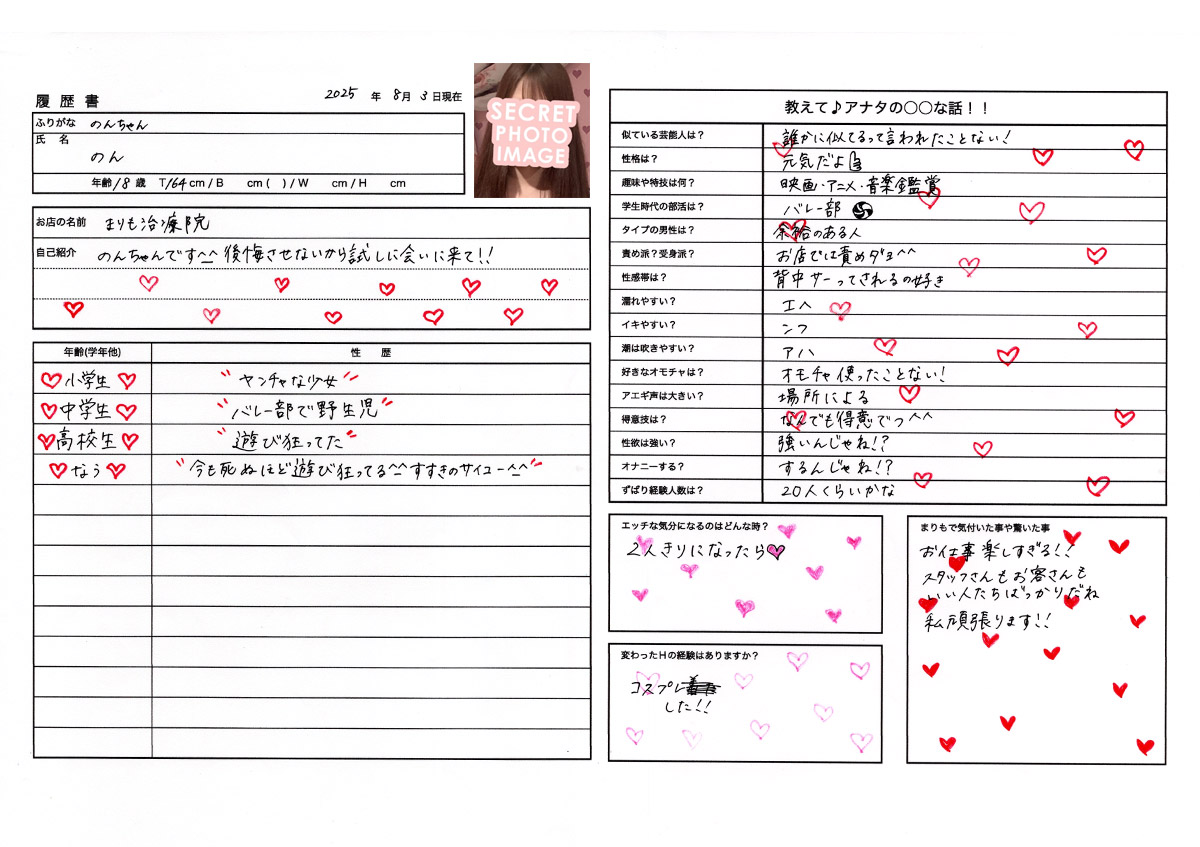 履歴書
2025 年 8月 3 日現在
SECRET
PHOTO
IMAGE
ふりがな のんちゃん
氏 名
のん
年齢 18 歳 T/64 cm / B cm ( ) / W cm / H cm
お店の名前 まりも治療院
自己紹介 のんちゃんです^_^ 後悔させないから試しに会いに来て!!
年齢(学年他) 性 歴
小学生 "ヤンチャな少女"
中学生 "バレー部で野生児"
高校生 "遊び狂ってた"
なう "今も死ぬほど遊び狂ってる^^すすきのサイコー^-^"
教えて♪アナタの○○な話！！
似ている芸能人は? 誰かに似てるって言われたことない!
性格は? 元気だよ
趣味や特技は何? 映画・アニメ・音楽鑑賞
学生時代の部活は? バレー部
タイプの男性は? 余裕のある人
責め派？受身派？ お店では責めダヨ^^
性感帯は? 背中サーってされるの好き
濡れやすい? エヘ
イキやすい? ンフ
潮は吹きやすい? アハ
好きなオモチャは? オモチャ使ったことない!
アエギ声は大きい? 場所による
得意技は? なんでも得意でっ^^
性欲は強い? 強いんじゃね!?
オナニーする? するんじゃね!?
ずばり経験人数は? 20人くらいかな
エッチな気分になるのはどんな時？
2人きりになったら♡
変わったHの経験はありますか？
コスプレ
した!!
まりもで気付いた事や驚いた事
お仕事楽しすぎる!!
スタッフさんもお客さんも
いい人たちばっかりだね
私頑張ります!!